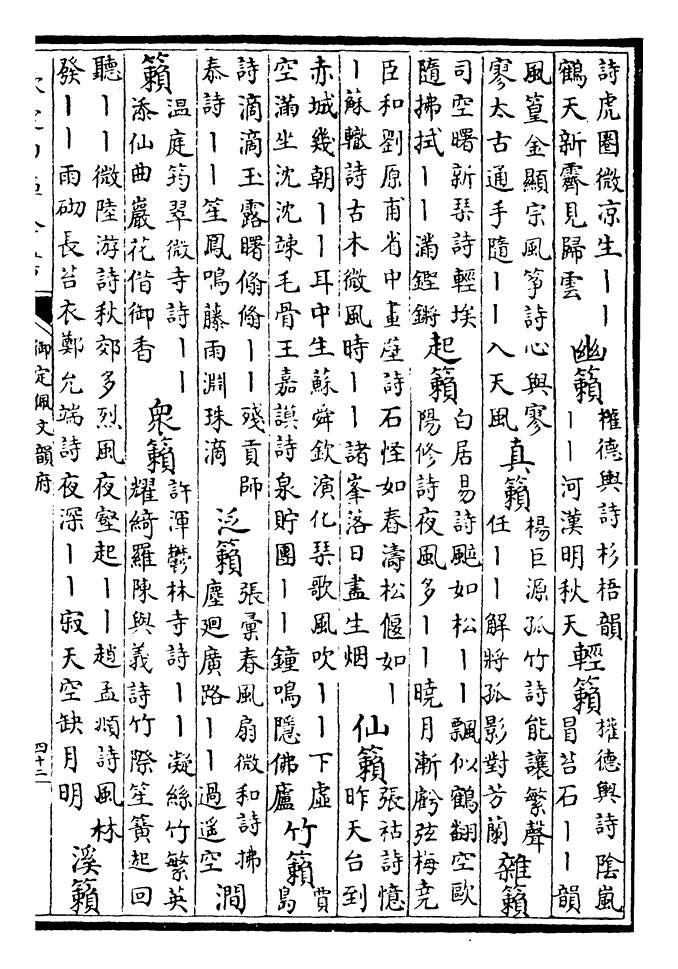 詩虎圈微凉生丨丨
鶴天新霽見歸雲
幽籟
權德輿詩杉梧韻
丨丨河漢明秋天
輕籟
權德輿詩陰嵐
冒苔石丨丨韻
風篁金顯宗風箏詩心與寥
寥太古通手隨丨丨入天風
真籟
楊巨源孤竹詩能讓繁聲
任丨丨解將孤影對芳蘭
雜籟
司空曙新琴詩輕埃
隨拂拭丨丨滿鏗鏘
起籟
白居易詩颼如松丨丨飄似鶴翻空歐
陽修詩夜風多丨丨曉月漸虧弦梅堯
臣和劉原甫省中畫壁詩石怪如春濤松偃如丨
丨蘇轍詩古木微風時丨丨諸峯落日盡生烟
仙籟
張祜詩憶
昨天台到
赤城幾朝丨丨耳中生蘇舜欽演化琴歌風吹丨丨下虛
空滿坐沈沈竦毛骨王嘉謨詩泉貯團丨丨鐘鳴隱佛廬
竹籟
賈
島
詩滴滴玉露曙翛翛丨丨殘貢師
泰詩丨丨笙鳳鳴藤雨淵珠滴
泛籟
張彙春風扇微和詩拂
塵廻廣路丨丨過遥空
澗
籟
温庭筠翠微寺詩丨丨
添仙曲巖花借御香
衆籟
許渾鬱林寺詩丨丨凝絲竹繁英
耀綺羅陳與義詩竹際笙簧起回
聽丨丨微陸游詩秋郊多烈風夜壑起丨丨趙孟頫詩風林
發丨丨雨砌長苔衣鄭允端詩夜深丨丨寂天空缺月明
溪籟
御定佩文韻府
四十二